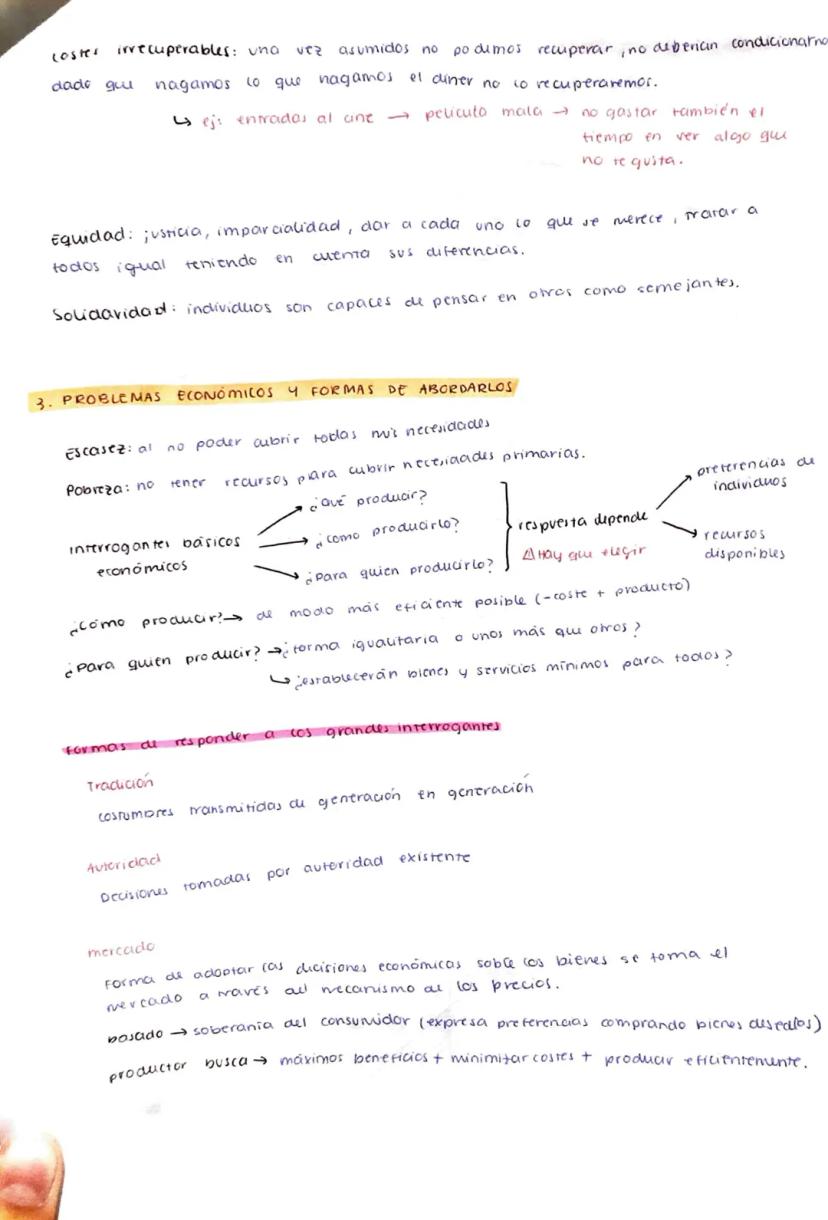 costes irrecuperables: una vez asumidos no podemos recuperar, no deberían condicionarno
dado que hagamos lo que hagamos el diner no lo recuperaremos.
↳ ej: entradas al cine → película mala → no gastar también el
tiempo en ver algo que
no te gusta.
Equidad: justicia, imparcialidad, dar a cada uno lo que se merece, tratar a
todos igual teniendo en cuenta sus diferencias.
Solidaridad: individuos son capaces de pensar en otros como semejantes.
3. PROBLEMAS ECONÓMICOS Y FORMAS DE ABORDARLOS
Escasez: al no poder cubrir todas mis necesidades
Pobreza: no tener recursos para cubrir necesidades primarias.
Interrogantes básicos
económicos
¿Qué producir?
¿Cómo producirlo?
¿Para quien producirlo?
respuesta depende
⚠Hay que elegir
preferencias de
individuos
recursos
disponibles
¿Cómo producir?→ de modo más eficiente posible (-coste + producto)
¿Para quien producir? →¿forma igualitaria o unos más que otros?
↳ ¿establecerán bienes y servicios mínimos para todos?
Formas de responder a los grandes interrogantes
Tradición
costumbres transmitidas de generación en generación
Autoridad
Decisiones tomadas por autoridad existente
mercado
Forma de adoptar las decisiones económicas sobre los bienes se toma el
mercado a través del mecanismo de los precios.
basado → soberanía del consumidor (expresa preferencias comprando bienes deseados)
productor busca → máximos beneficios + minimizar costes + producir eficientemente.